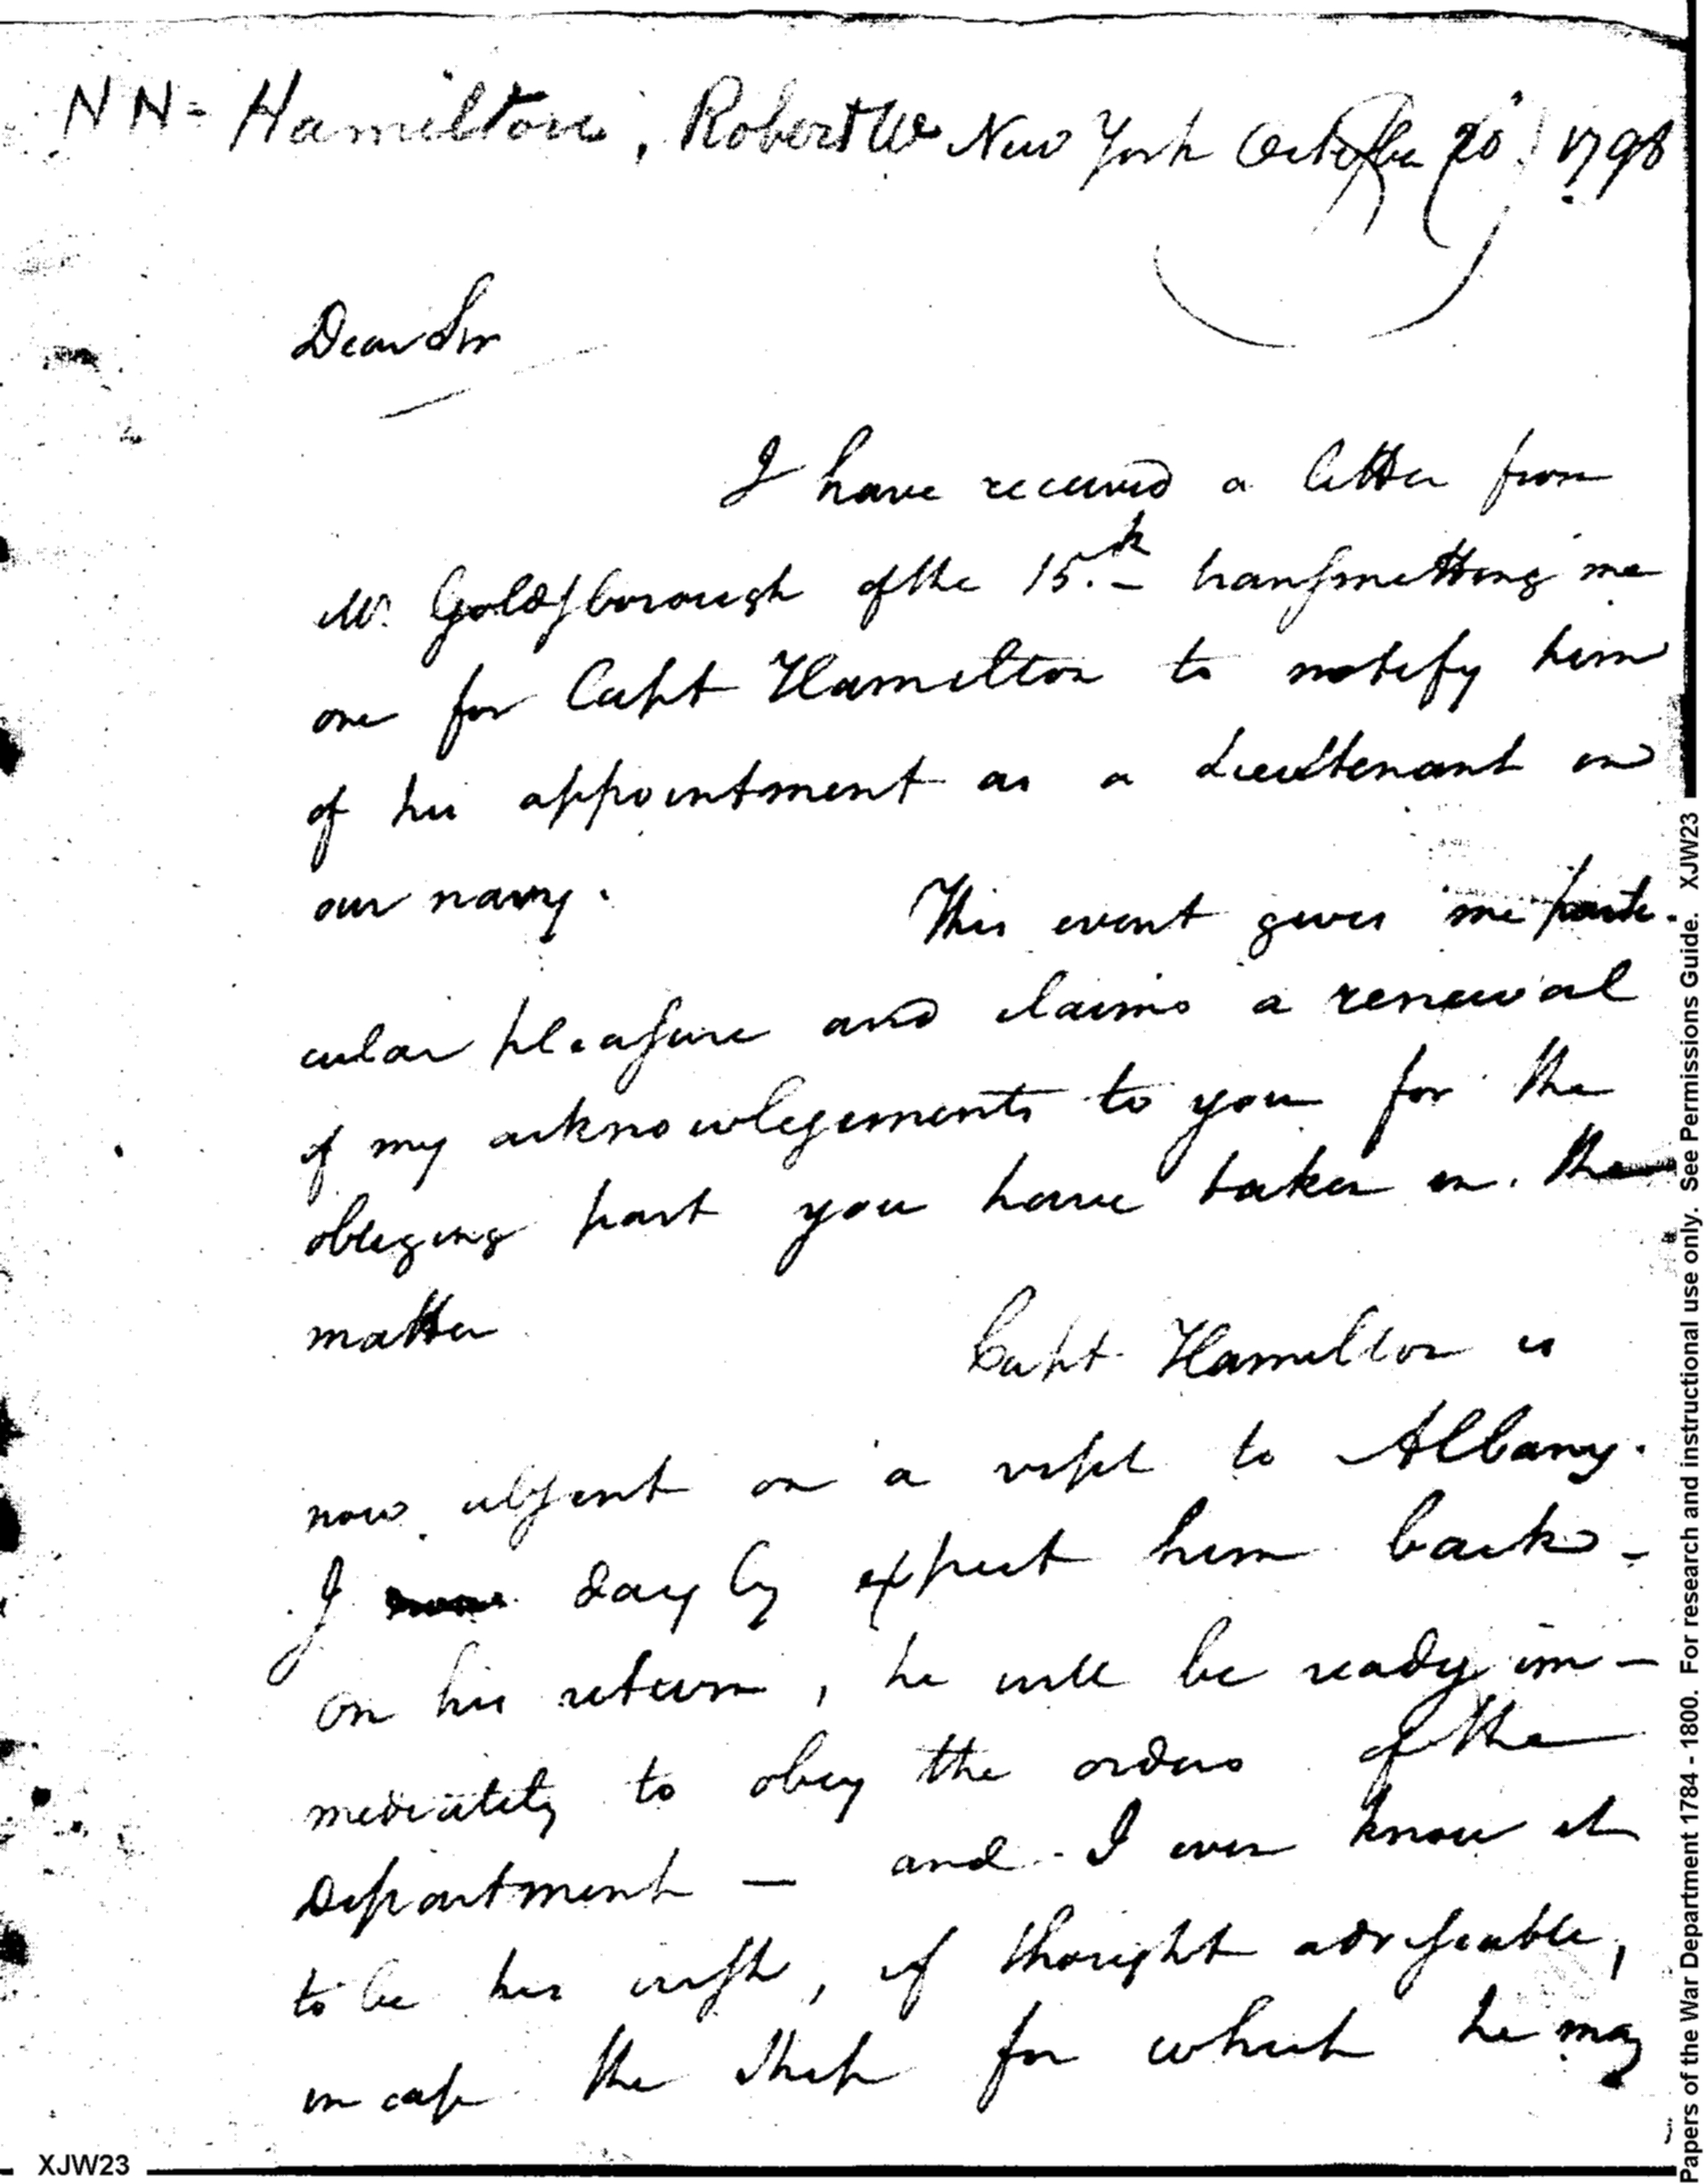 NN- Hamilton, Robert W New York October 20 1798
Dear Sir
I have received a letter from
Mr. Goldsborough of the 15.th transmitting me
one for Capt Hamilton to notify him
of his appointment as a Lieutenant in
our navy. This event gives me parti-
cular pleasure and claims a renewal
of my acknowlegements to you for the
obliging part you have taken in the
matter Capt Hamilton is
now absent on a visit to Albany.
I dayly expect him back -
on his return, he will be ready im-
mediately to obey the orders of the
Department — and I even know it
to be his wish, if thought adviseable,
in case the Ship for which he may
XJW23
Papers of the War Department 1784 - 1800. For research and instructional use only. See Permissions Guide. XJW23